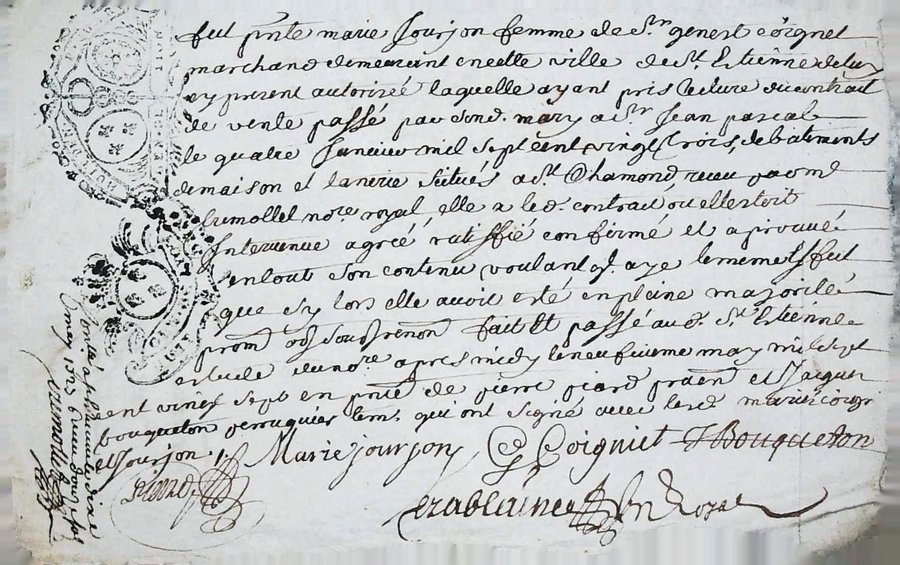 fut pnte marie Jourjon femme de Sr. genest Coignet
marchand demeurant en cette ville de St. Estienne de luy
cy present autorizée laquelle ayant pris lecture du contrait
de vente passé par sond. mary a Sr Jean pascal
le quatre Janvier mil sept cent vingt trois, de batiments
de maison et tanerie scitués a St. Chamond, receu par me
Crimollet nore. royal, elle a led. contract ou elle estoit
Intervenue agreé ratiffié confirmé et aprouvé
en tout son contenu voulant ql. aye le meme Effait
que sy lors elle avoit esté en pleine majorité
prom. obl. soubz. renon. fait Et passé aud. St. Estienne
estude du nore. apres midy le neufvieme may mil sept
cent vingt sept en pnce de pierre piard praen. et Jaques
bouqueton perruquier tem. qui ont signé avec lesd. mariés coign
et Jourjon.
Marie jourjon
Coigniet
J Bouqueton
piard
n Royal
Crimollet